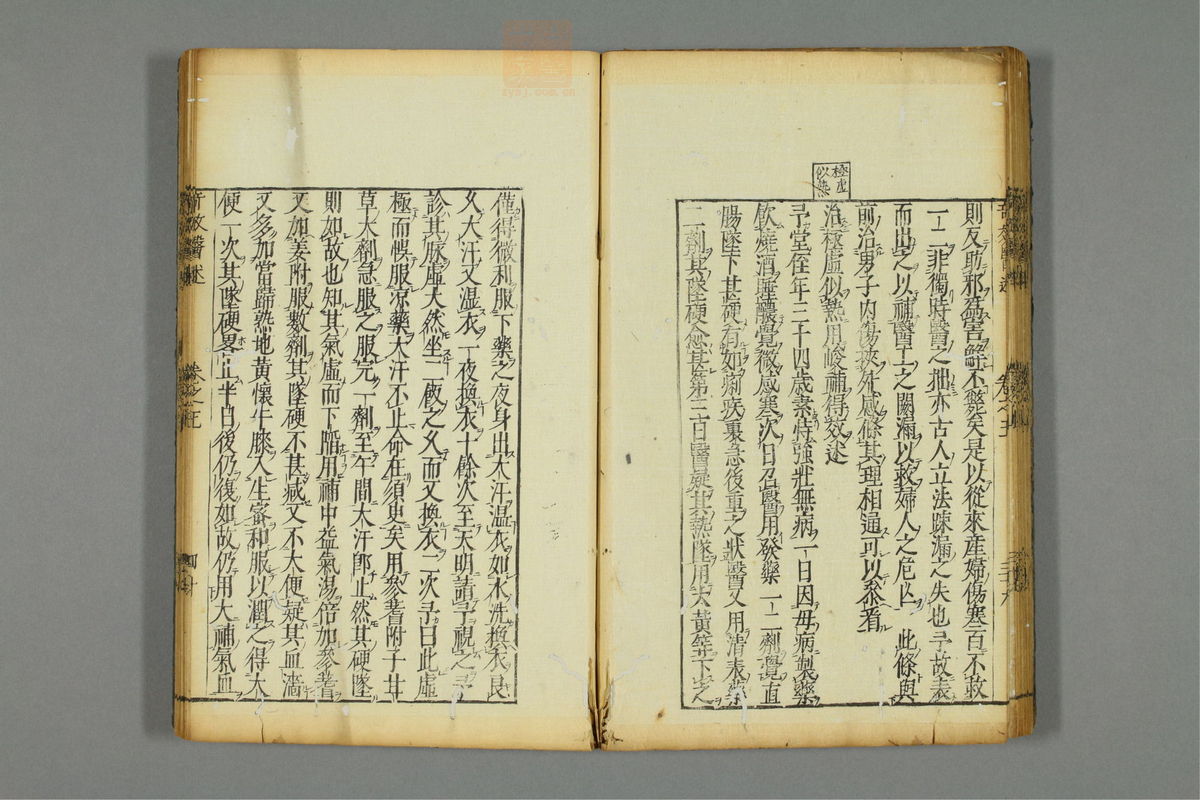 極虛
似熱
則反助邪益害解不斃矣是以從來產婦傷寒百不救
一二非獨時醫之拙亦古人立法疎漏之失也予故表
而出之以補醫工之闕漏以救婦人之危亡 此條與
前治男子內傷挾外感條其理相通可以參看
治極虛似熱用峻補得效述
予堂侄年三十四歲素恃強壯無病一日因母病製藥
飲燒酒睡醒覺微感寒次日召醫用發藥一二劑覺直
腸墜下甚硬有如痢疾裏急後重之狀醫又用清表藥
二劑其墜硬愈甚第三日醫疑其熱墜用大黃等下之
僅得微利服下藥之夜身出大汗濕衣如水洗換衣良
久大汗又濕衣一夜換衣十餘次至天明請予視之予
診其脉虛大然坐二飯之久而又換衣一次予曰此虛
極而悞服凉藥大汗不止命在須臾矣用參耆附子甘
草大劑急服之服完一劑至午間大汗即止然其硬墜
則如故也知其氣虛而下陷用補中益氣湯倍加參耆
又加姜附服數劑其墜硬不甚减又不大便疑其血濇
又多加當歸熟地黃懷牛膝入生蜜和服以潤之得大
便一次其墜硬畧止半日後仍復如故仍用大補氣血
醫述
卷之五